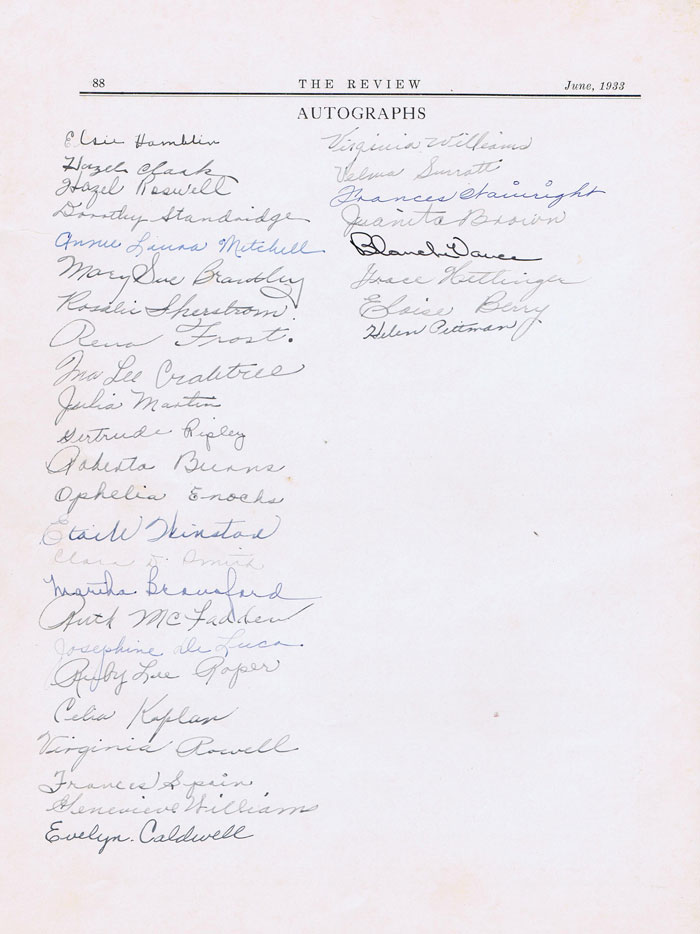 88 THE REVIEW June, 1933
AUTOGRAPHS
Elsie Hamblin
Hazel Clark
Hazel Roswell
Dorothy Standridge
Annie Laura Mitchell
Mary Sue Brambley
Rosalie Sherstrom
Rena Frost.
Ina Lee Crabtree
Julia Martin
Gertrude Ripley
Roberta Burns
Ophelia Enochs
Winstead
Clara D. Smith
Martha Crawford
Ruth McFadden
Josephine de Luca
Ruby Lee Roper
Celia Kaplan
Virginia Rowell
Frances Spain
Genevieve Williams
Evelyn Caldwell
Virginia Williams
Velma Surratt
Frances Wainright
Juanita Brown
Blanche Vance
Grace Hettinger
Eloise Berry
Helen Pittman